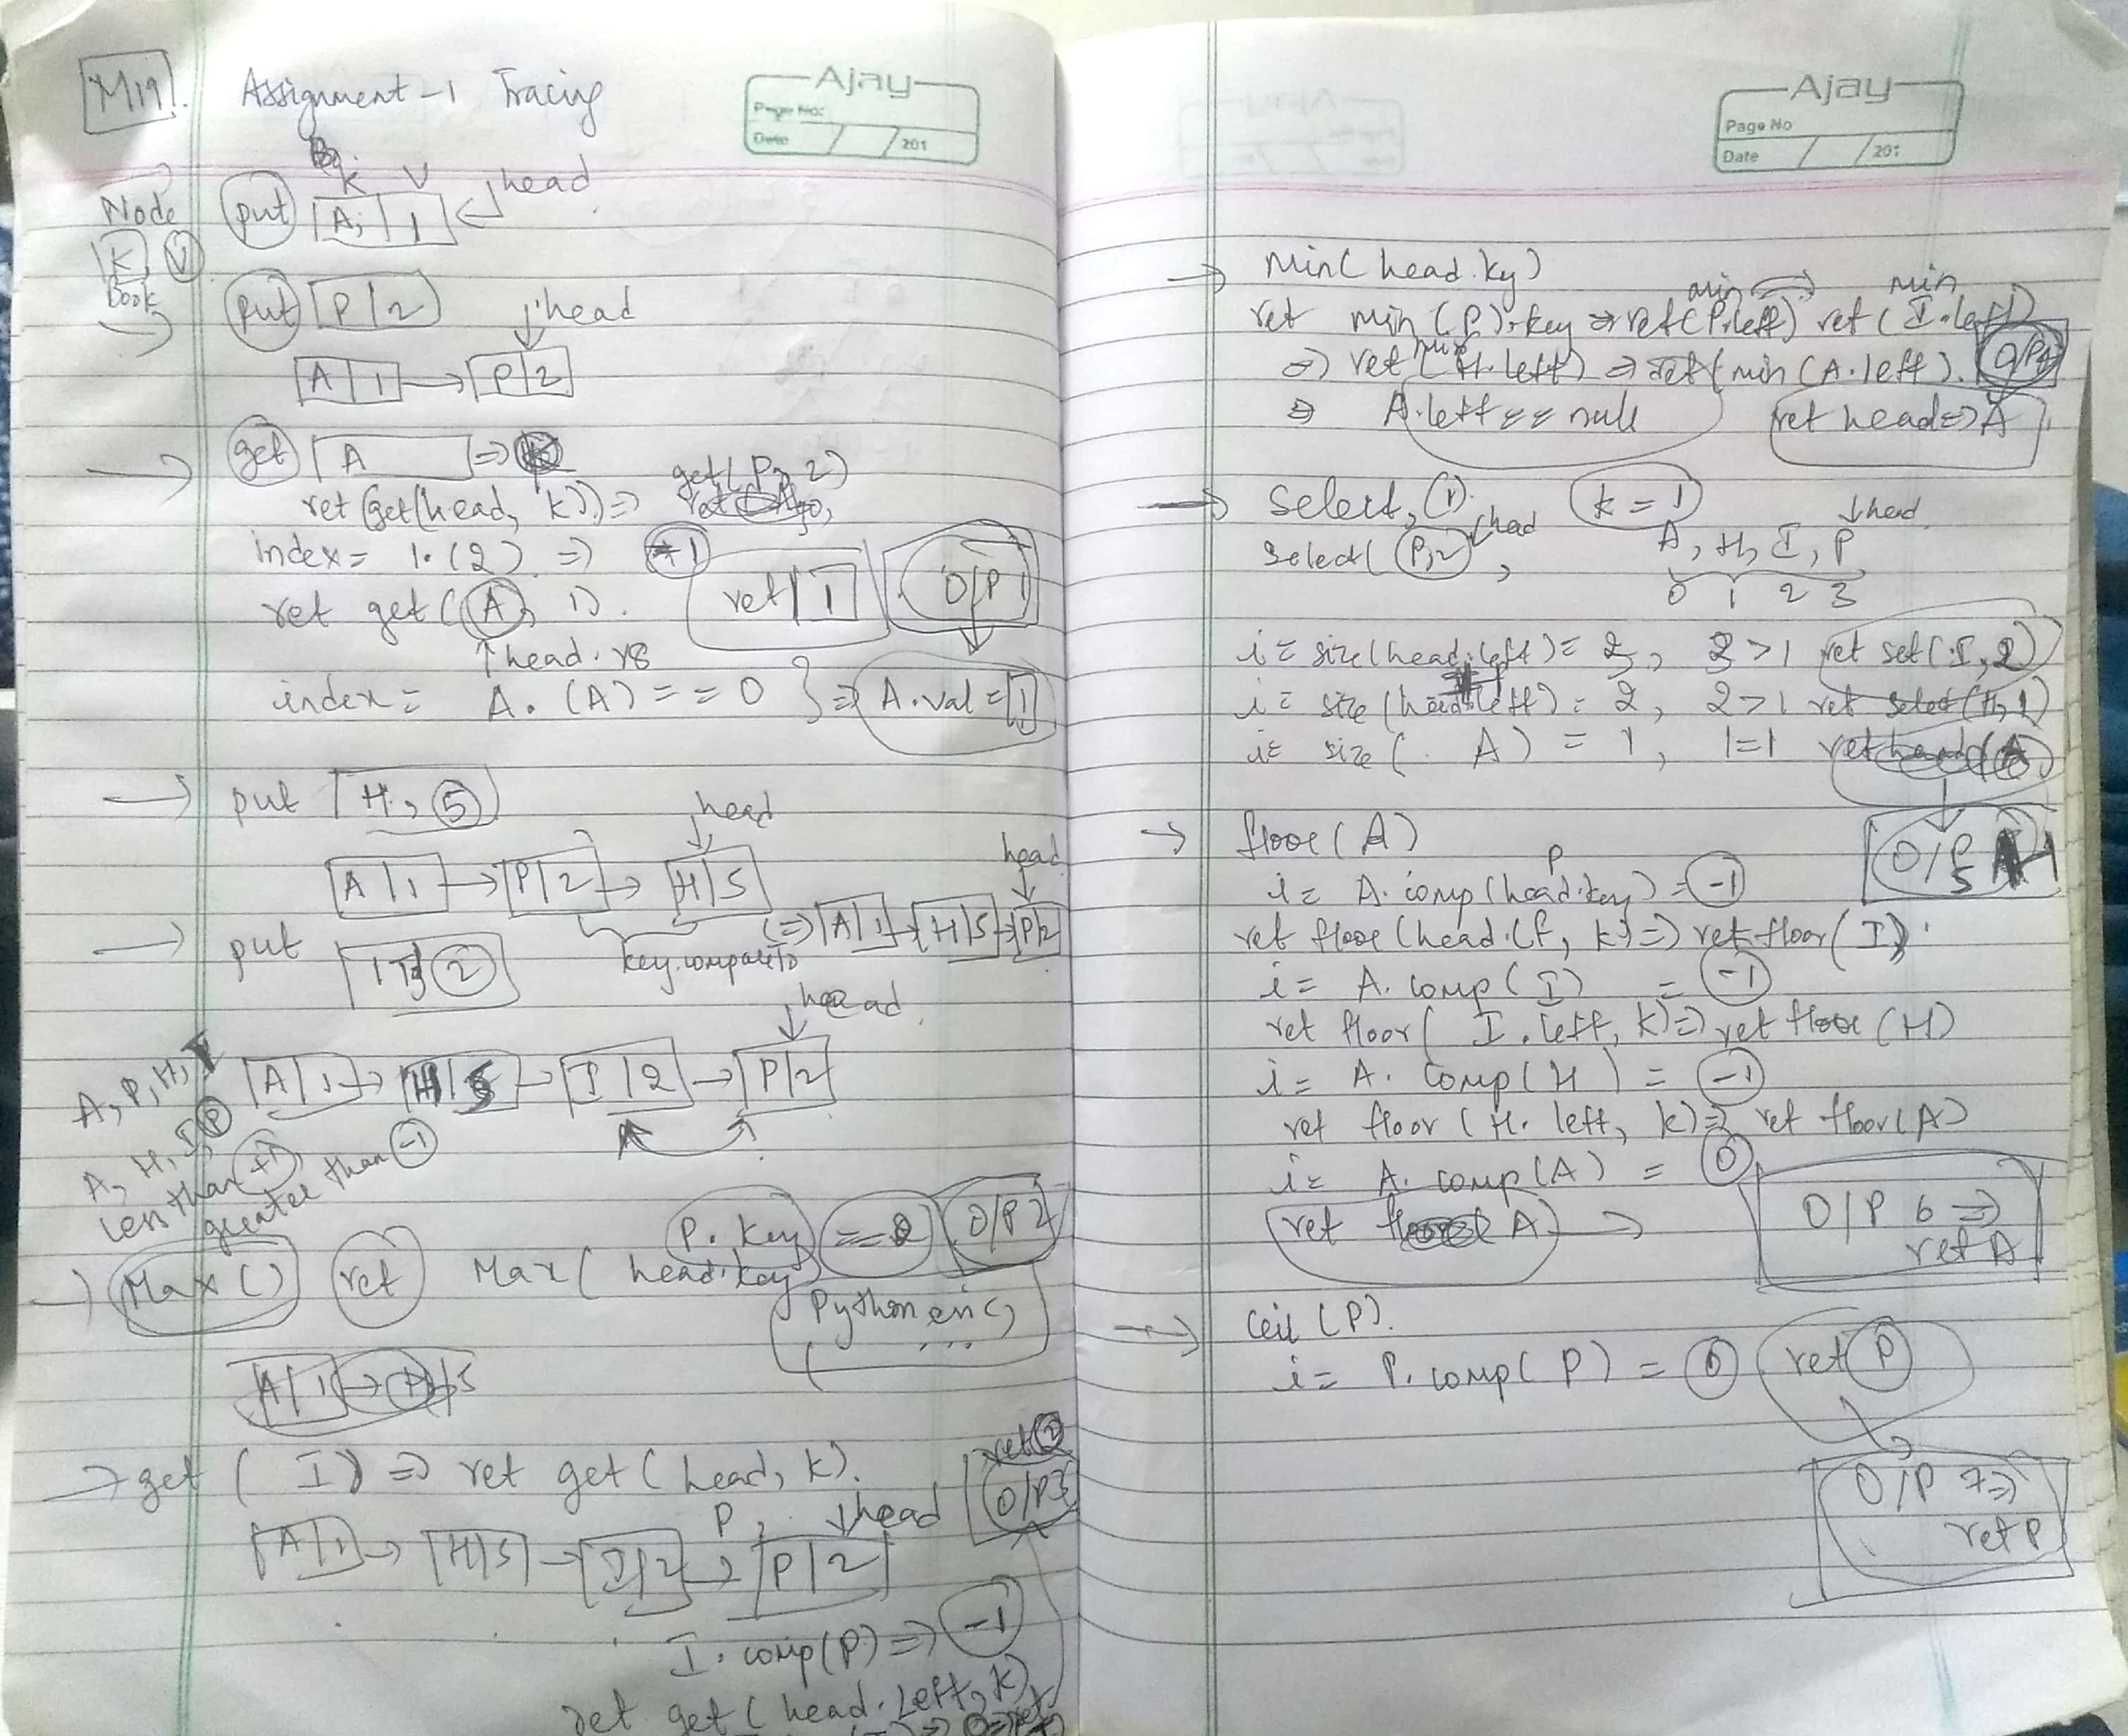 M19. Assignment-1 Tracing
Ajay
Page No:
Date / / 201
K V head
Node put A, 1
K V
book
put P | 2
head
A | 1 → P | 2
get A ⇒
ret (get(head, k)) ⇒ get(P, 2)
index = 1.(2) ⇒ 1
ret get (A, 1). ret 1 O/P 1
↑head.
index = A. (A) == 0 } ⇒ A.val = 1
put H, 5
head
A | 1 → P | 2 → H | 5
head
key.compareTo ⇒ A | 1 → H | 5 → P | 2
put I, 2
head
A, P, H, I A | 1 → H | 5 → I | 2 → P | 2
A, H, I, P
less than +1
greater than -1
P. key == 2 O/P 2
Max() ret Max( head.key)
Python
...
A | 1 → H | 5
→ get ( I ) ⇒ ret get ( head, k). ret 2
O/P 3
P, ↓head
A | 1 → H | 5 → I | 2 → P | 2
I. comp(P) ⇒ -1
ret get ( head. Left, k)
Ajay
Page No
Date / / 201
→ Min( head.ky)
min min
ret min (P).key ⇒ ret(P.left) ret ( I.left)
min
⇒ ret (H.left) ⇒ ret (min (A.left). O/P 4
⇒ A.left == null ret head ⇒ A
→ Select, (1). k = 1 ↓head
Select( P,2 head , A, H, I, P
0 1 2 3
i = size(head.left) = 2, 2 > 1 ret set( I, 2)
i = size (head.left) = 2, 2 > 1 ret select (H, 1)
i = size ( . A) = 1, 1=1 ret
O/P 5
→ floor ( A)
P
i = A. comp (head.key) = -1
ret floor (head.lf, k) ⇒ ret floor ( I ).
i = A. comp ( I ) = -1
ret floor ( I. left, k) ⇒ ret floor (H)
i = A. comp( H ) = -1
ret floor ( H. left, k) ⇒ ret floor (A)
i = A. comp (A) = 0
ret A → O/P 6 ⇒
ret A
→ Ceil (P).
i = P. comp( P ) = 0 ret P
O/P 7 ⇒
ret P